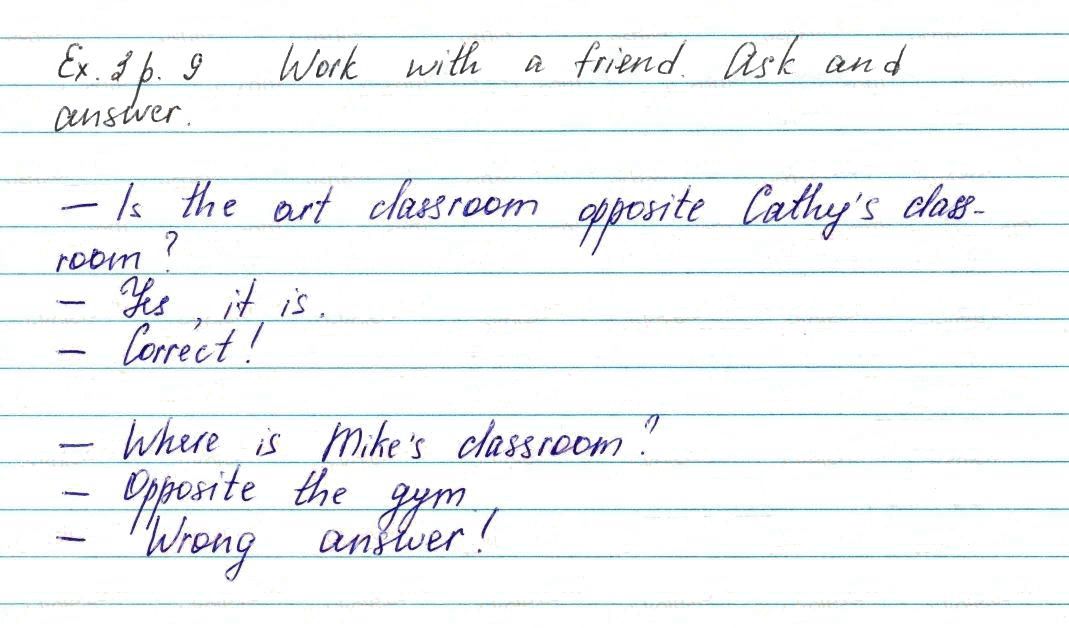 Ex. 2 p. 9 Work with a friend. Ask and
answer.
— Is the art classroom opposite Cathy's class-
room?
— Yes, it is.
— Correct!
— Where is Mike's classroom?
— Opposite the gym
— Wrong answer!